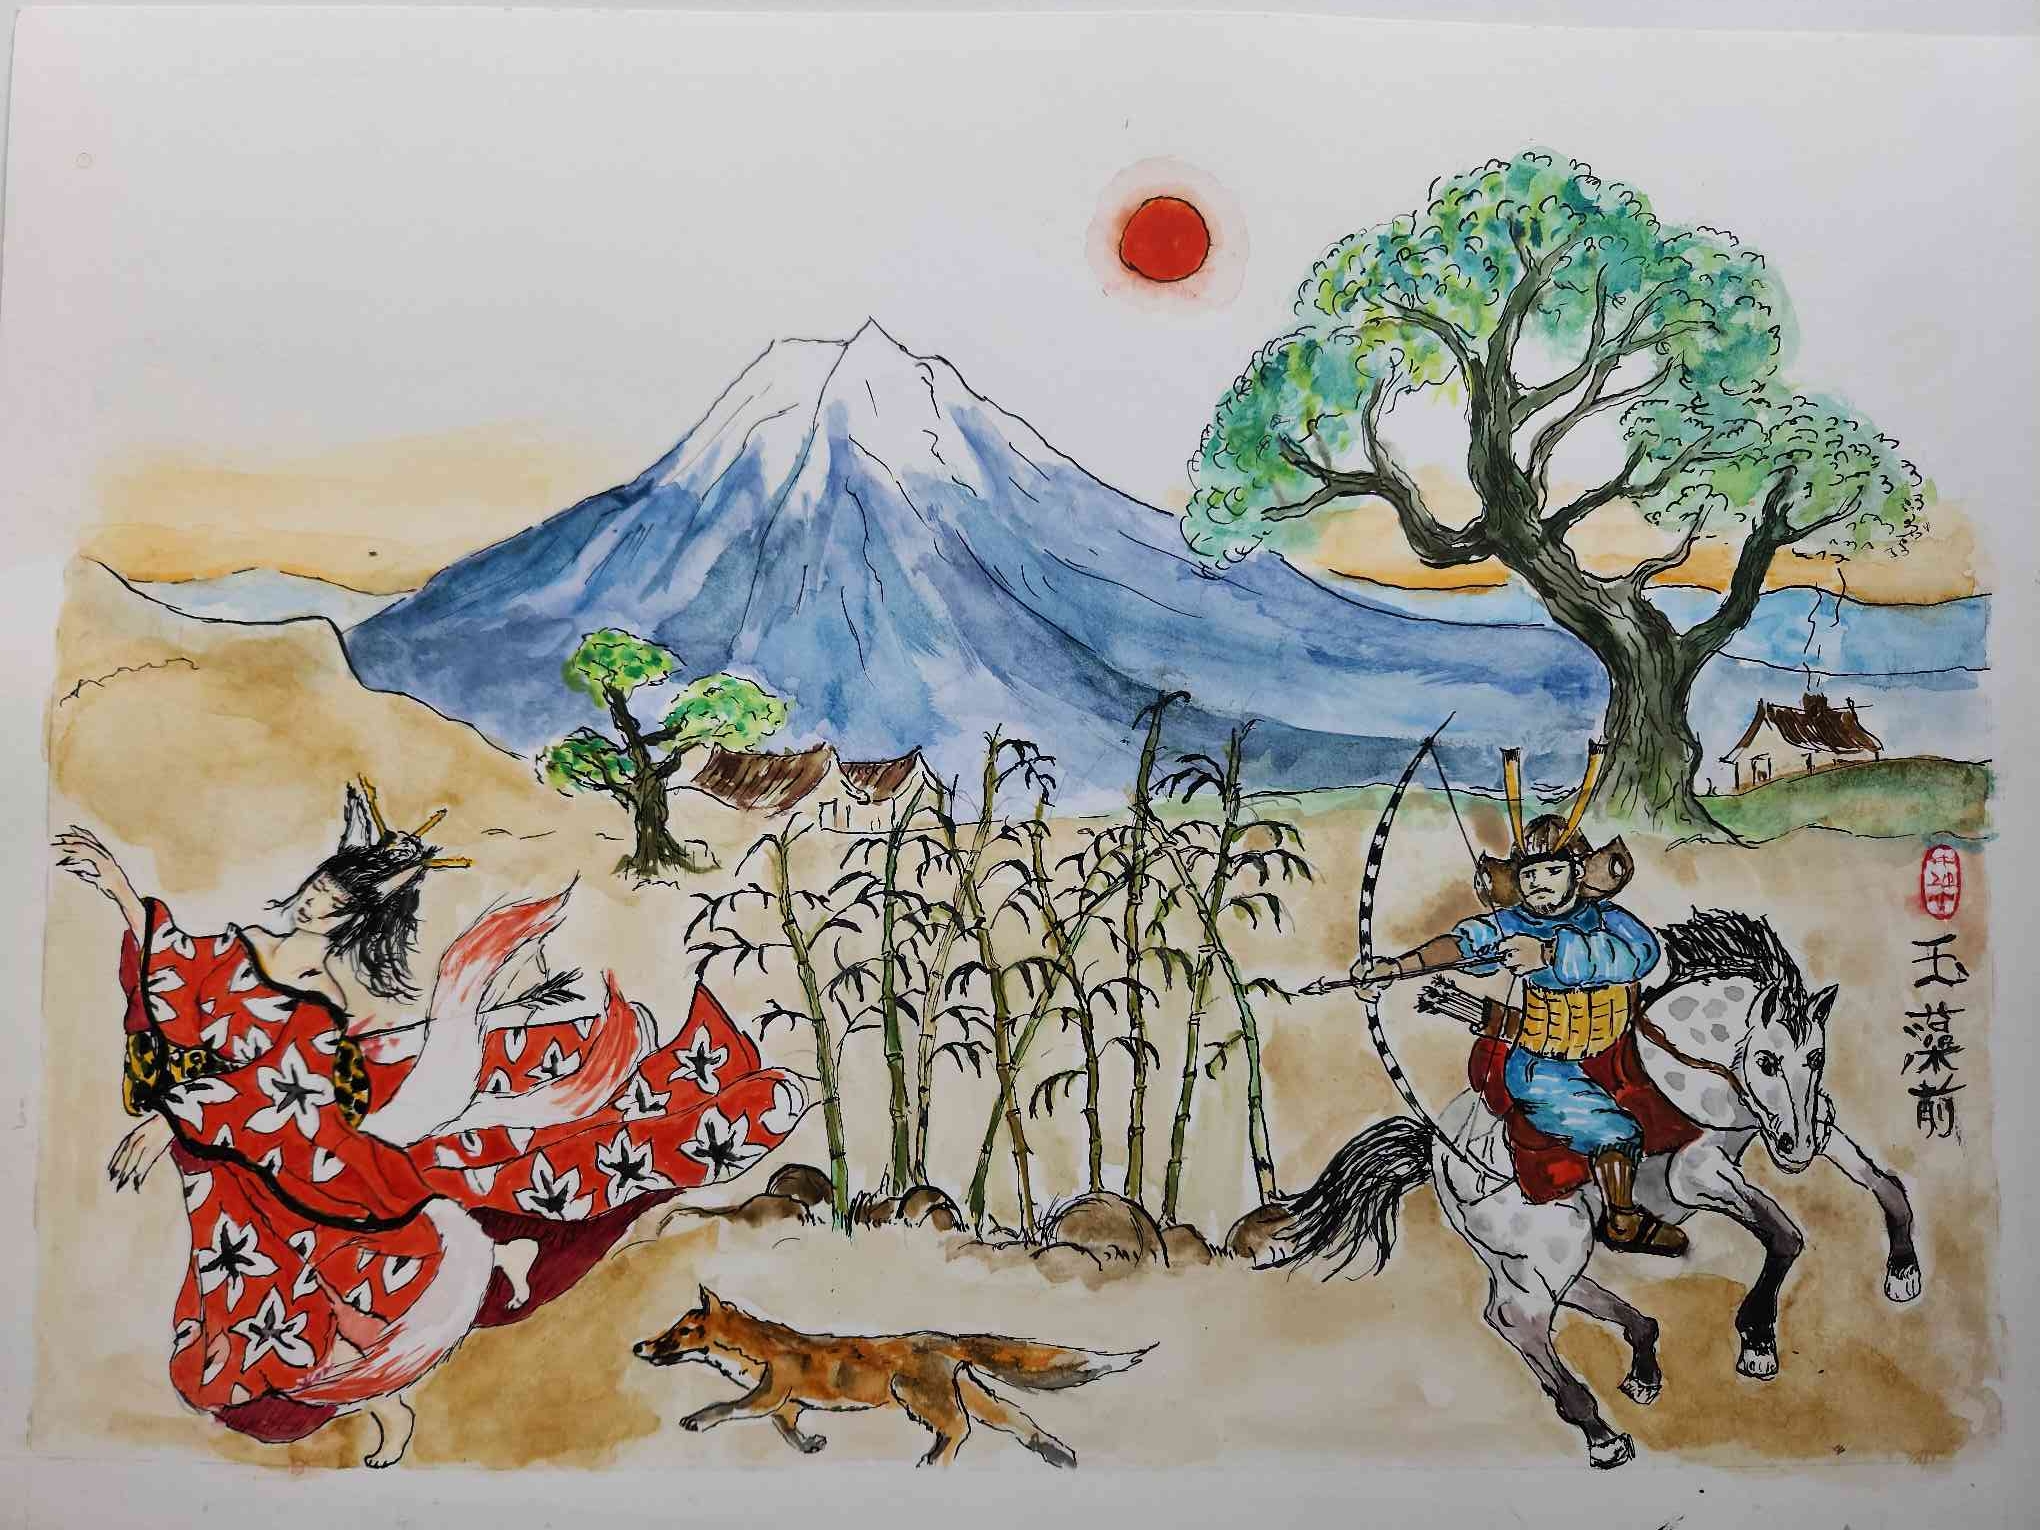 玉藻前